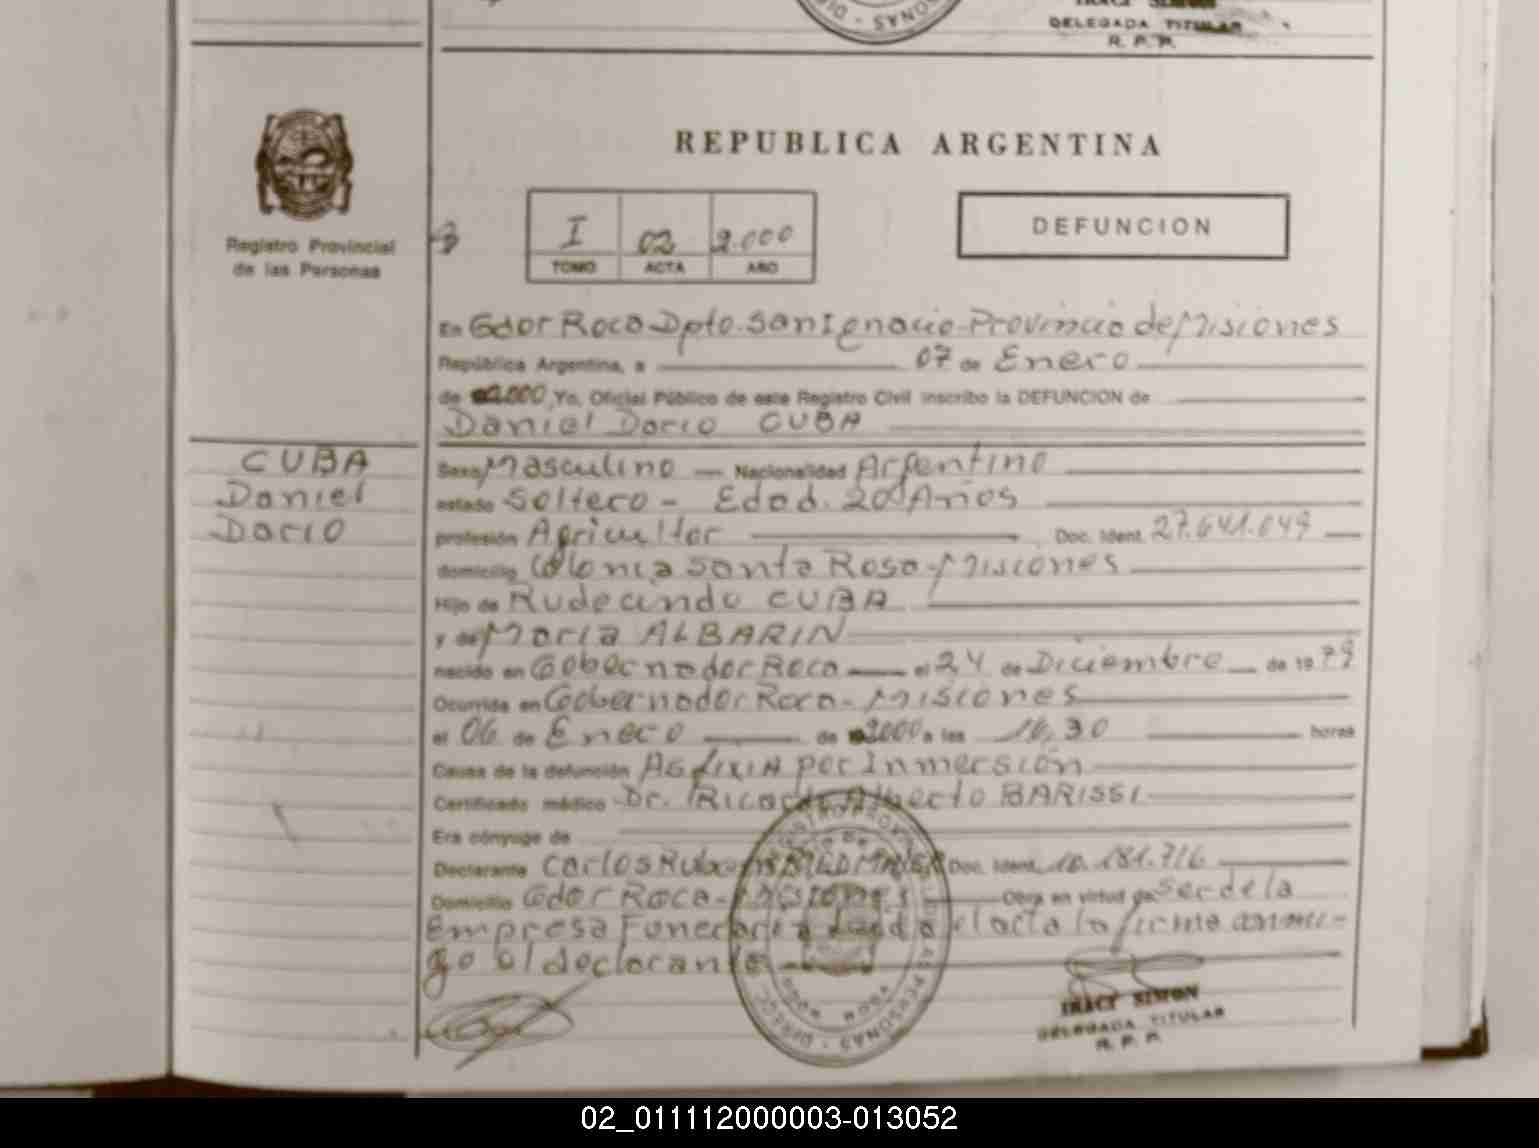 DELEGADA TITULAR
R. P. P.
REPUBLICA ARGENTINA
Registro Provincial
de las Personas
I 02 2.000
TOMO ACTA AÑO
DEFUNCION
En Gdor Roca Dpto. San Ignacio-Provincia de Misiones
República Argentina, a 07 de Enero
de 2.000, Yo, Oficial Público de este Registro Civil inscribo la DEFUNCION de
Daniel Dario CUBA
CUBA
Daniel
Dario
Sexo Masculino - Nacionalidad Argentino
estado Soltero - Edad. 20 Años
profesión Agricultor Doc. Ident. 27.641.049
domicilio Colonia Santa Rosa-Misiones
Hijo de Rudecindo CUBA
y de Maria ALBARIN
nacido en Gobernador Roca el 24 de Diciembre de 19 79
Ocurrida en Gobernador Roca-Misiones
el 06 de Enero de 2000 a las 16,30 horas
Causa de la defunción Asfixia por Inmersión
Certificado médico Dr. Ricardo Alberto BARISSI
Era cónyuge de
Declarante Carlos Doc. Ident. 10.181.716
Domicilio Gdor Roca-Misiones Obra en virtud de Ser de la
Empresa Funeraria el acta la firma conmi-
go el declarante
IRACI SIMON
DELEGADA TITULAR
R. P. P.
02_011112000003-013052